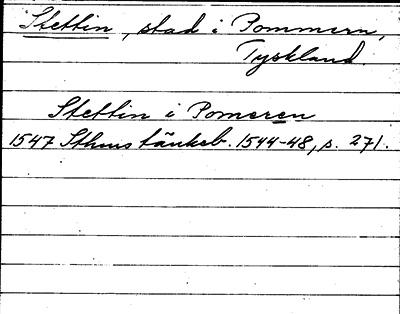 Stettin, stad i Pommern,
Tyskland.
Stettin i Pomeren
1547 Sthms tänkeb. 1544-48, s. 271.